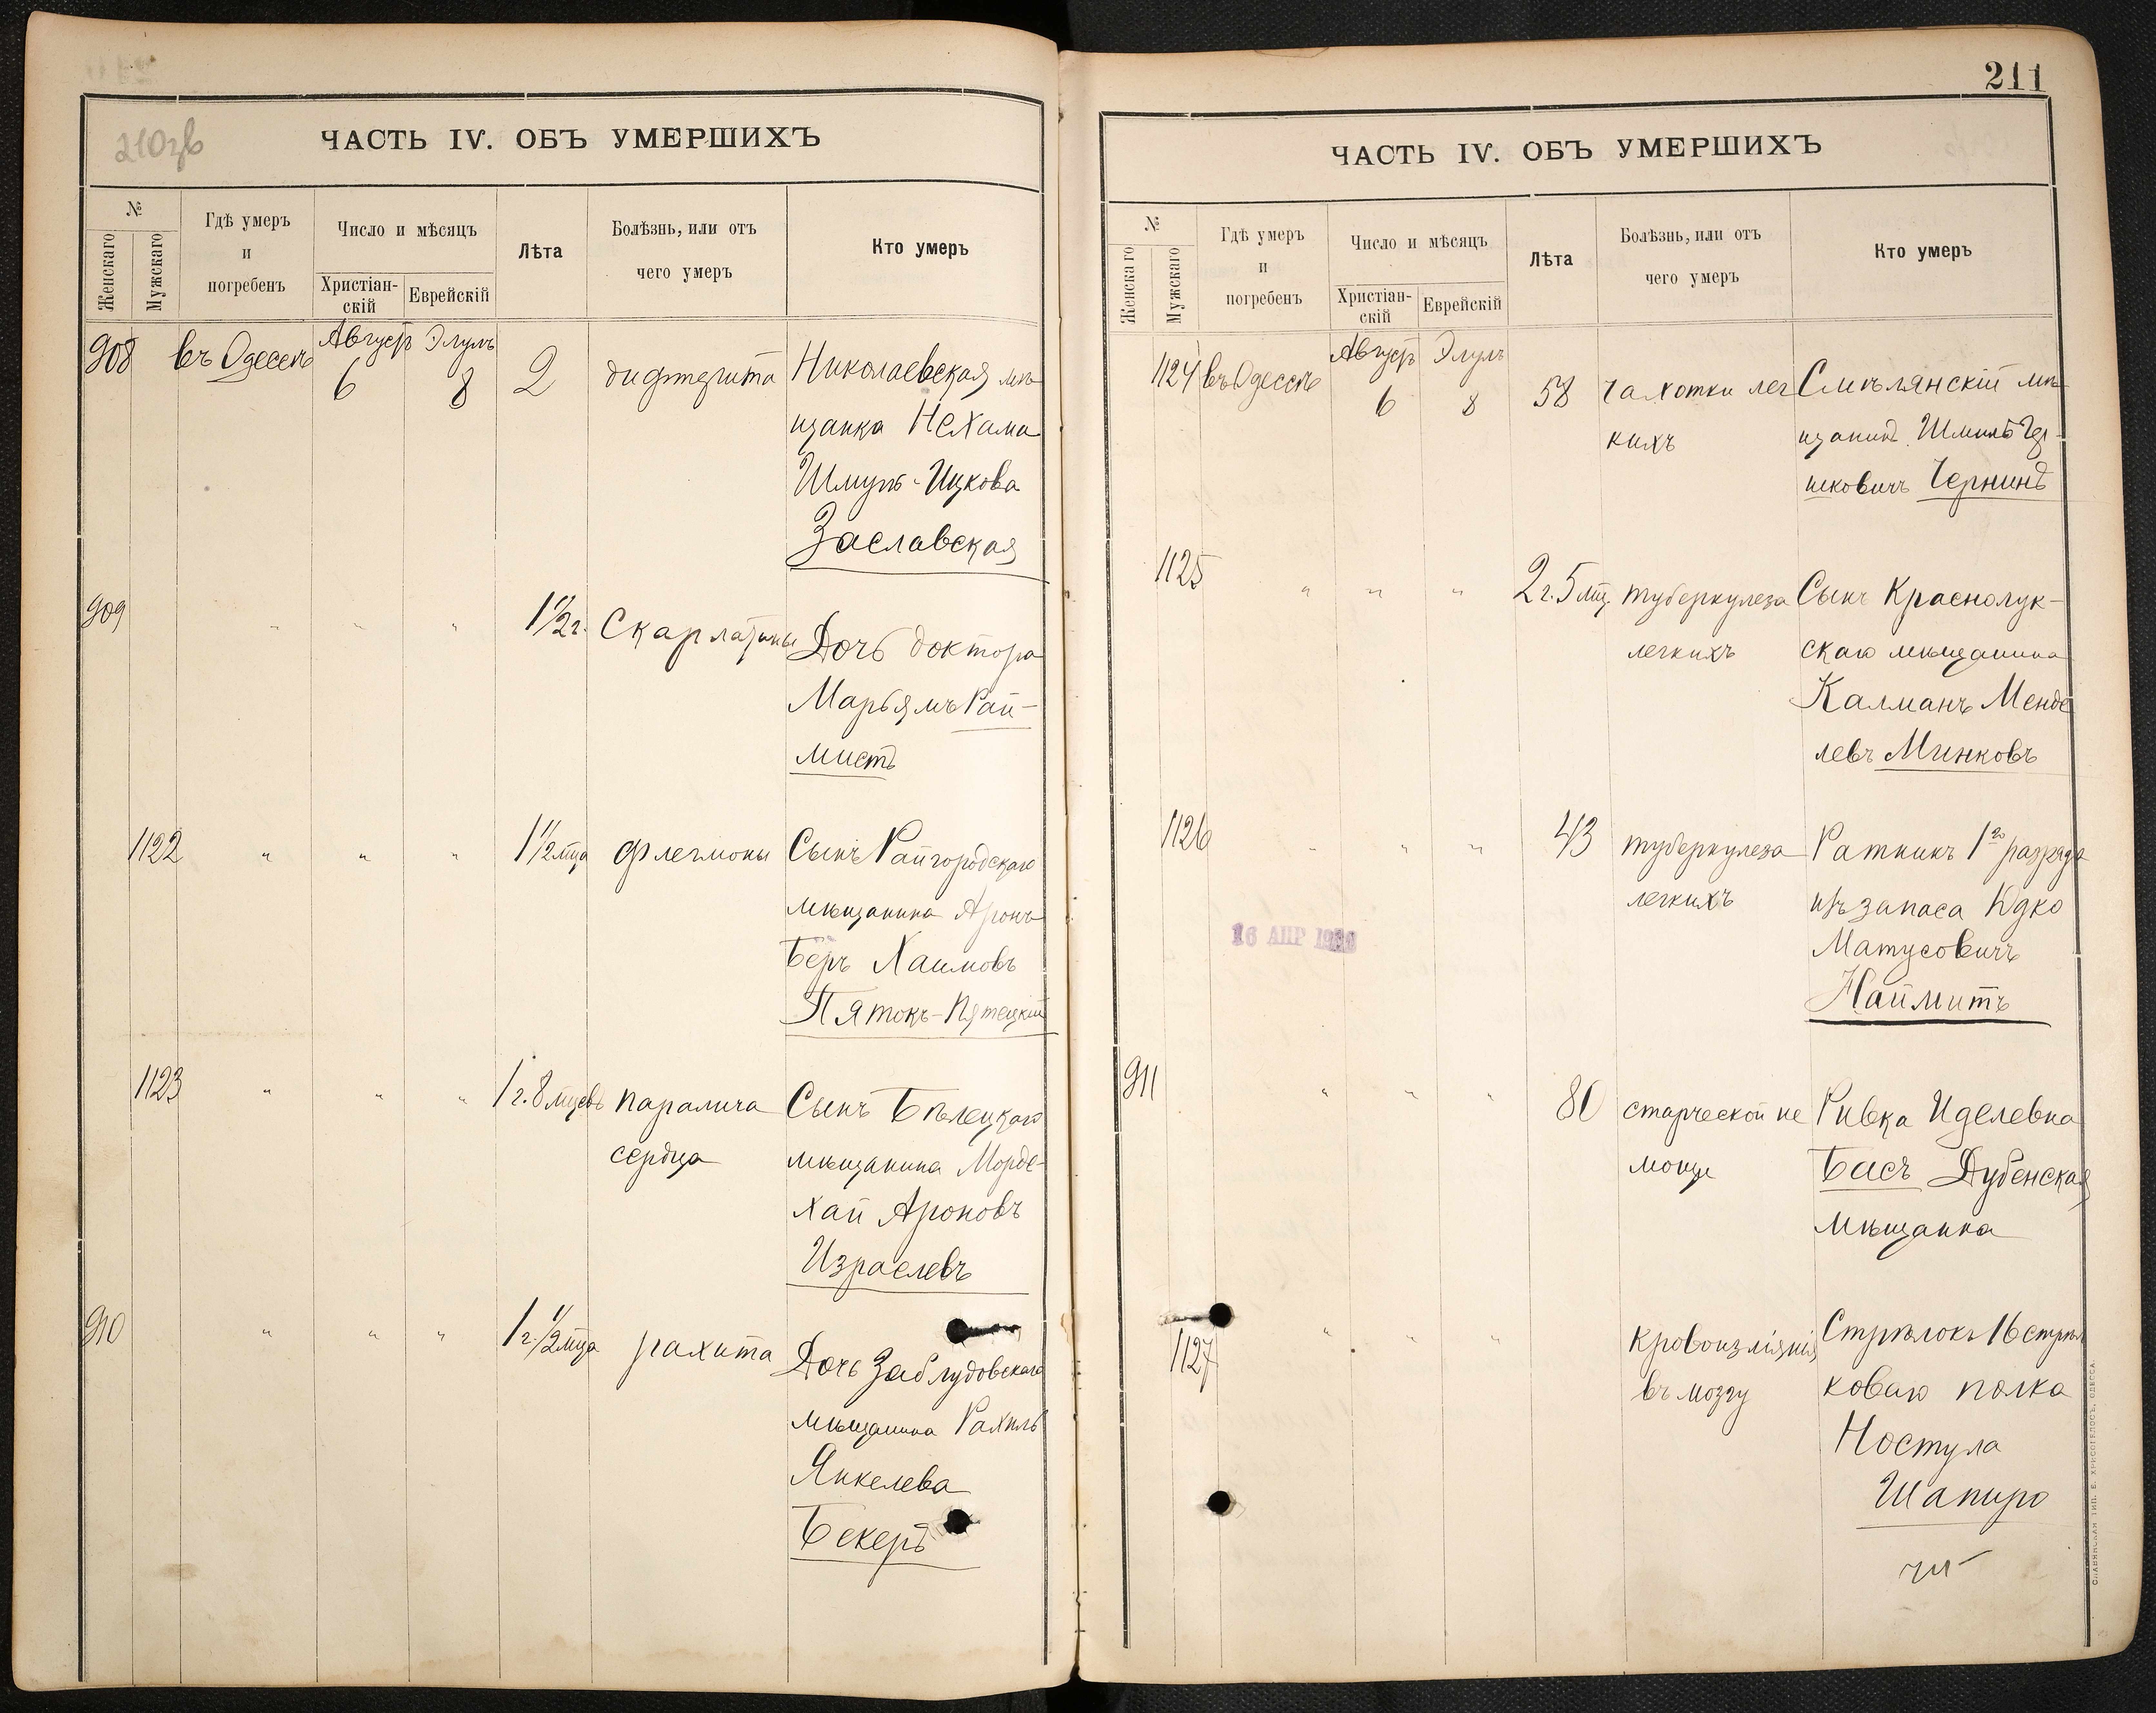 210зв
ЧАСТЬ IV. ОБЪ УМЕРШИХЪ
№
Женскаго
Мужскаго
Гдѣ умеръ
и
погребенъ
Число и мѣсяцъ
Христіан-
скій
Еврейскій
Лѣта
Болѣзнь, или отъ
чего умеръ
Кто умеръ
908 въ Одессѣ Август Элулъ
6 8 2 дифтерита Николаевская мѣ-
щанка Нехама
Шмул-Ицкова
Заславская
909 " " " 1 1/2 г. Скарлатины Дочь доктора
Марьямъ Рай-
мистъ
1122 " " " 1 1/2 мца флегмоны Сынъ Райгородскаго
мѣщанина Аронъ
Беръ Хаимовъ
Пятокъ-Пятецкій
1123 " " " 1 г. 8 мцевъ паралича Сынъ Бѣлецкаго
сердца мѣщанина Морде-
хай Ароновъ
Израелевъ
910 " " " 1 г. 1/2 мца рахита Дочь Заблудовскаго
мѣщанина Рахиль
Янкелева
Бекеръ
211
ЧАСТЬ IV. ОБЪ УМЕРШИХЪ
№
Женскаго
Мужскаго
Гдѣ умеръ
и
погребенъ
Число и мѣсяцъ
Христіан-
скій
Еврейскій
Лѣта
Болѣзнь, или отъ
чего умеръ
Кто умеръ
1124 въ Одессѣ Август Элулъ
6 8 58 чахотки лег Смѣлянскій мѣ-
кихъ щанинъ Шмиль Гер-
шковичъ Чернинъ
1125 " " " 2 г. 5 мц. туберкулеза Сынъ Краснолук-
легкихъ скаго мѣщанина
Калманъ Менде
левъ Минковъ
1126 " " " 43 туберкулеза Ратникъ 1го разряда
легкихъ изъ запаса Юдко
16 АПР
Матусовичъ
Наймитъ
911 " " " 80 старческой не Ривка Иделевна
мощи Басъ Дубенская
мѣщанка
1127 " " " Кровоизліянія Стрѣлокъ 16 стрѣл
въ мозгу коваго полка
Ностула
Шапиро
СЛАВЯНСКАЯ ТИП. Е. ХРИСОГЕЛОСЪ, ОДЕССА.